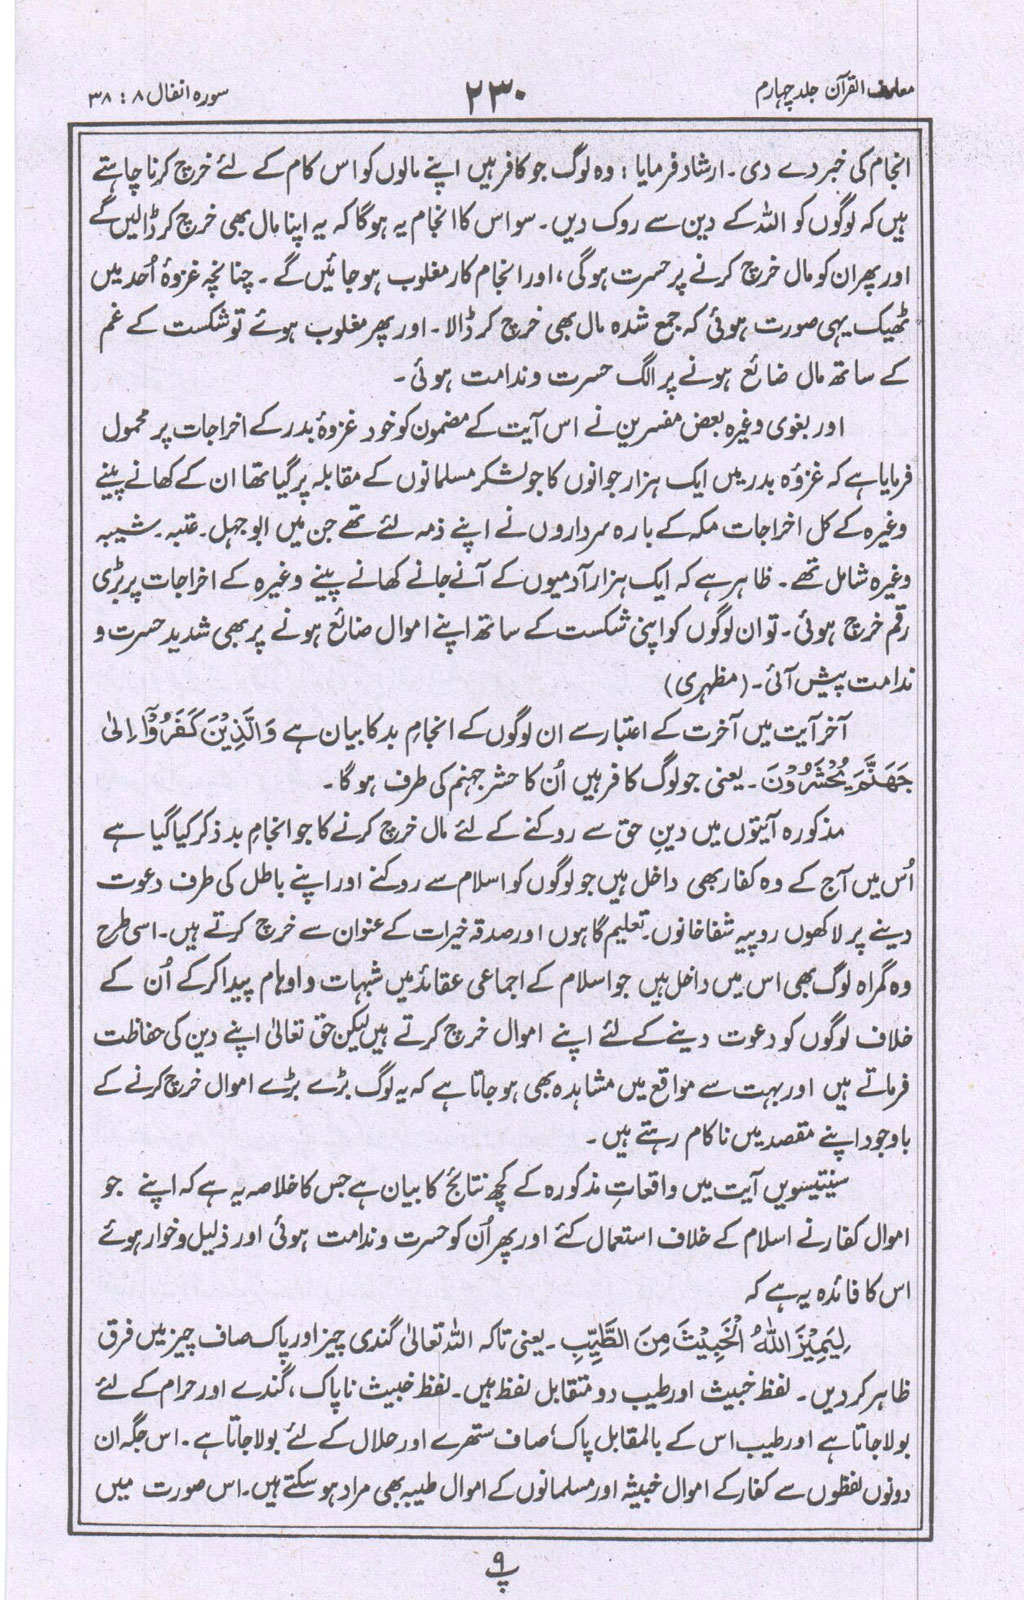 معارف القرآن جلد چہارم
۲۳۰
سورہ انفال ۸ : ۳۸
انجام کی خبر دے دی۔ ارشاد فرمایا : وہ لوگ جو کافر ہیں اپنے مالوں کو اس کام کے لئے خرچ کرنا چاہتے
ہیں کہ لوگوں کو اللہ کے دین سے روک دیں۔ سو اس کا انجام یہ ہوگا کہ یہ اپنا مال بھی خرچ کر ڈالیں گے
اور پھر ان کو مال خرچ کرنے پر حسرت ہوگی، اور انجام کار مغلوب ہو جائیں گے۔ چنانچہ غزوۂ اُحد میں
ٹھیک یہی صورت ہوئی کہ جمع شدہ مال بھی خرچ کر ڈالا۔ اور پھر مغلوب ہوئے تو شکست کے غم
کے ساتھ مال ضائع ہونے پر الگ حسرت و ندامت ہوئی۔
اور بغوی وغیرہ بعض مفسرین نے اس آیت کے مضمون کو خود غزوۂ بدر کے اخراجات پر محمول
فرمایا ہے کہ غزوۂ بدر میں ایک ہزار جوانوں کا جو لشکر مسلمانوں کے مقابلہ پر گیا تھا ان کے کھانے پینے
وغیرہ کے کل اخراجات مکہ کے بارہ سرداروں نے اپنے ذمہ لئے تھے جن میں ابو جہل۔ عتبہ۔ شیبہ
وغیرہ شامل تھے۔ ظاہر ہے کہ ایک ہزار آدمیوں کے آنے جانے کھانے پینے وغیرہ کے اخراجات پر بڑی
رقم خرچ ہوئی۔ تو ان لوگوں کو اپنی شکست کے ساتھ اپنے اموال ضائع ہونے پر بھی شدید حسرت و
ندامت پیش آئی۔ (مظہری)
آخر آیت میں آخرت کے اعتبار سے ان لوگوں کے انجامِ بد کا بیان ہے وَالَّذِيْنَ كَفَرُوْٓا اِلٰى
جَهَنَّمَ يُحْشَرُوْنَ ۔ یعنی جو لوگ کافر ہیں اُن کا حشر جہنم کی طرف ہوگا۔
مذکورہ آیتوں میں دینِ حق سے روکنے کے لئے مال خرچ کرنے کا جو انجامِ بد ذکر کیا گیا ہے
اُس میں آج کے وہ کفار بھی داخل ہیں جو لوگوں کو اسلام سے روکنے اور اپنے باطل کی طرف دعوت
دینے پر لاکھوں روپیہ شفاخانوں۔ تعلیم گاہوں اور صدقہ خیرات کے عنوان سے خرچ کرتے ہیں۔ اسی طرح
وہ گمراہ لوگ بھی اس میں داخل ہیں جو اسلام کے اجماعی عقائد میں شبہات و اوہام پیدا کرکے اُن کے
خلاف لوگوں کو دعوت دینے کے لئے اپنے اموال خرچ کرتے ہیں لیکن حق تعالیٰ اپنے دین کی حفاظت
فرماتے ہیں اور بہت سے مواقع میں مشاہدہ بھی ہو جاتا ہے کہ یہ لوگ بڑے بڑے اموال خرچ کرنے کے
باوجود اپنے مقصد میں ناکام رہتے ہیں۔
سینتیسویں آیت میں واقعاتِ مذکورہ کے کچھ نتائج کا بیان ہے جس کا خلاصہ یہ ہے کہ اپنے جو
اموال کفار نے اسلام کے خلاف استعمال کئے اور پھر اُن کو حسرت و ندامت ہوئی اور ذلیل و خوار ہوئے
اس کا فائدہ یہ ہے کہ
لِيَمِيْزَ اللّٰهُ الْخَبِيْثَ مِنَ الطَّيِّبِ ۔ یعنی تاکہ اللہ تعالیٰ گندی چیز اور پاک صاف چیز میں فرق
ظاہر کر دیں۔ لفظ خبیث اور طیب دو متقابل لفظ ہیں۔ لفظ خبیث ناپاک، گندے اور حرام کے لئے
بولا جاتا ہے اور طیب اس کے بالمقابل پاک، صاف ستھرے اور حلال کے لئے بولا جاتا ہے۔ اس جگہ ان
دونوں لفظوں سے کفار کے اموال خبیثہ اور مسلمانوں کے اموال طیبہ بھی مراد ہو سکتے ہیں۔ اس صورت میں
پ ۹